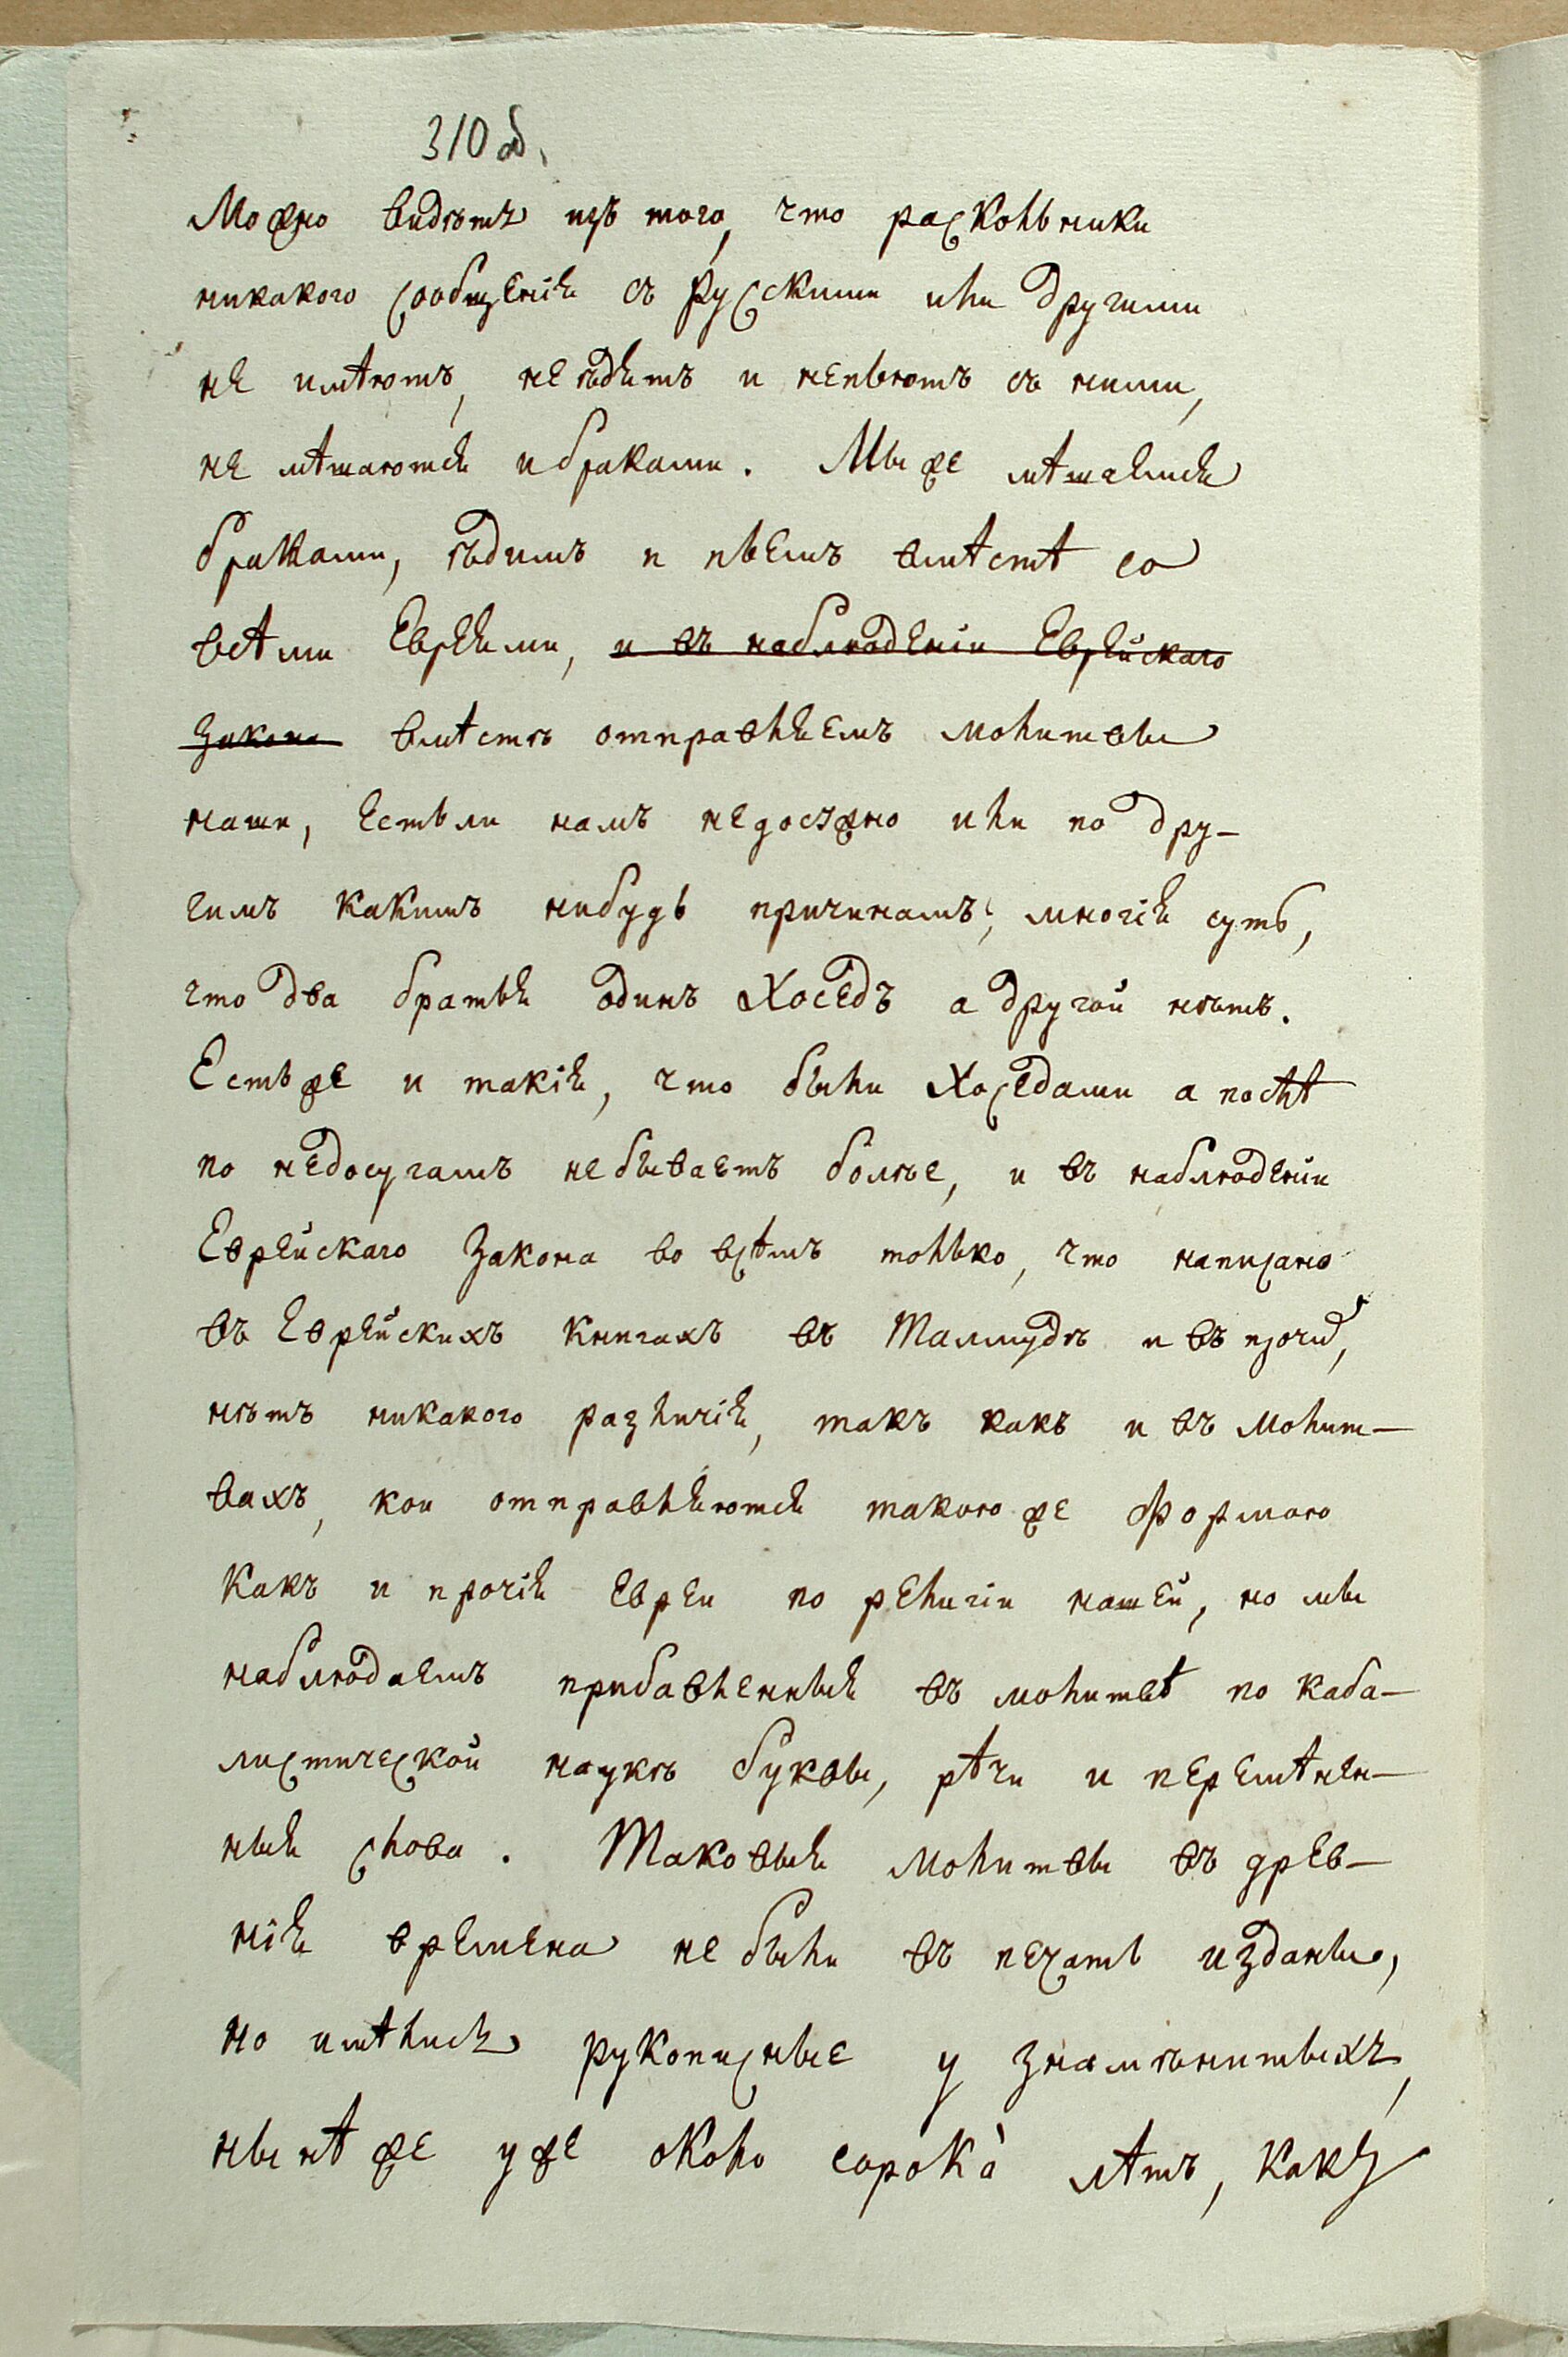 310 об.
Можно видѣть изъ того, что раскольники
никакого сообщенія съ Рускими или другими
не имѣютъ, не ѣдятъ и непьютъ съ ними,
не мѣшаются и браками. Мы же мѣшаемся
браками, ѣдимъ и пьемъ вмѣстѣ со
всѣми Евреями, и въ наблюденіи Еврейскаго
закона вмѣстѣ отправляемъ молитвы
наши, естьли намъ недосужно или по дру-
гимъ какимъ нибудь причинамъ; многія суть,
что два братья одинъ Хоседъ а другой нѣтъ.
Есть же и такія, что были Хоседами а послѣ
по недосугамъ не бываетъ болѣе, и въ наблюденіи
Еврейскаго Закона во всѣмъ только, что написано
въ Еврейскихъ Книгахъ въ Талмудѣ и въ проч:,
нѣтъ никакого различія, такъ какъ и въ молит-
вахъ, кои отправляются такою же формою
какъ и прочія Евреи по религіи нашей, но мы
наблюдаемъ прибавленныя въ молитвѣ по каба-
листической наукѣ буквы, рѣчи и перемѣнен-
ныя слова. Таковыя молитвы въ древ-
нія времена не были въ печать изданы,
но имѣлись рукописные у знамѣнитыхъ,
нынѣ же уже около сорокà лѣтъ, какъ